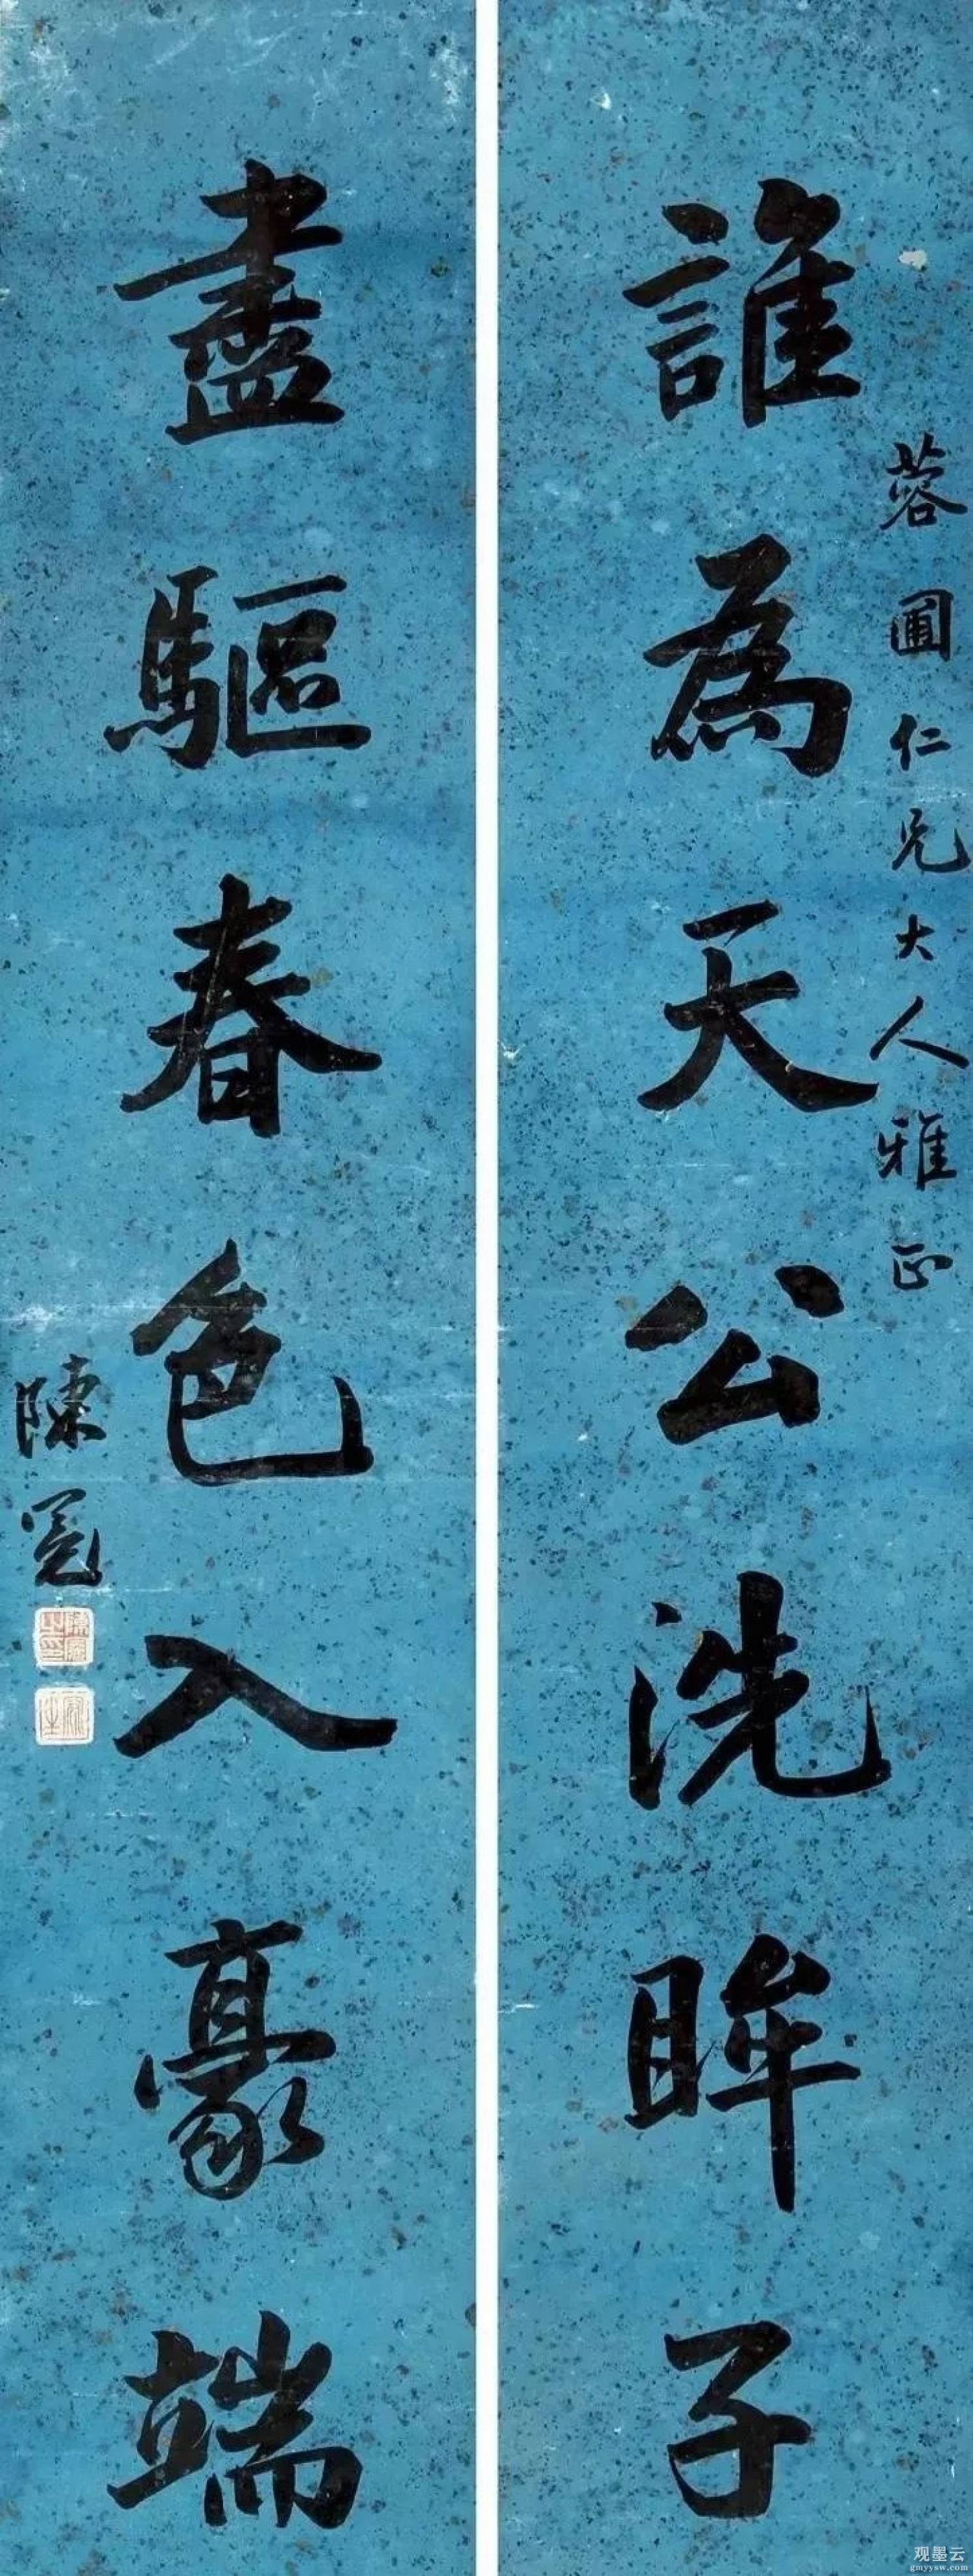 蓉圃仁兄大人雅正
誰為天公洗眸子
盡驅春色入豪端
陳冕
观墨云
gmyysw.com